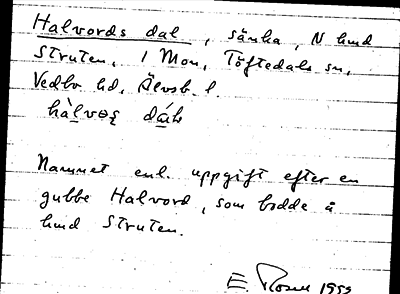 Halvords dal, sänka, N hmd
Struten, 1 Mon, Töftedals sn,
Vedbo hd, Älvsb. l.
Namnet enl. uppgift efter en
gubbe Halvord, som bodde å
hmd Struten.
E. Rosell 1952